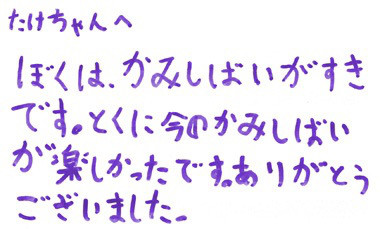 たけちゃんへ
ぼくは、かみしばいがすき
です。とくに今のかみしばい
が楽しかったです。ありがとう
ございました。